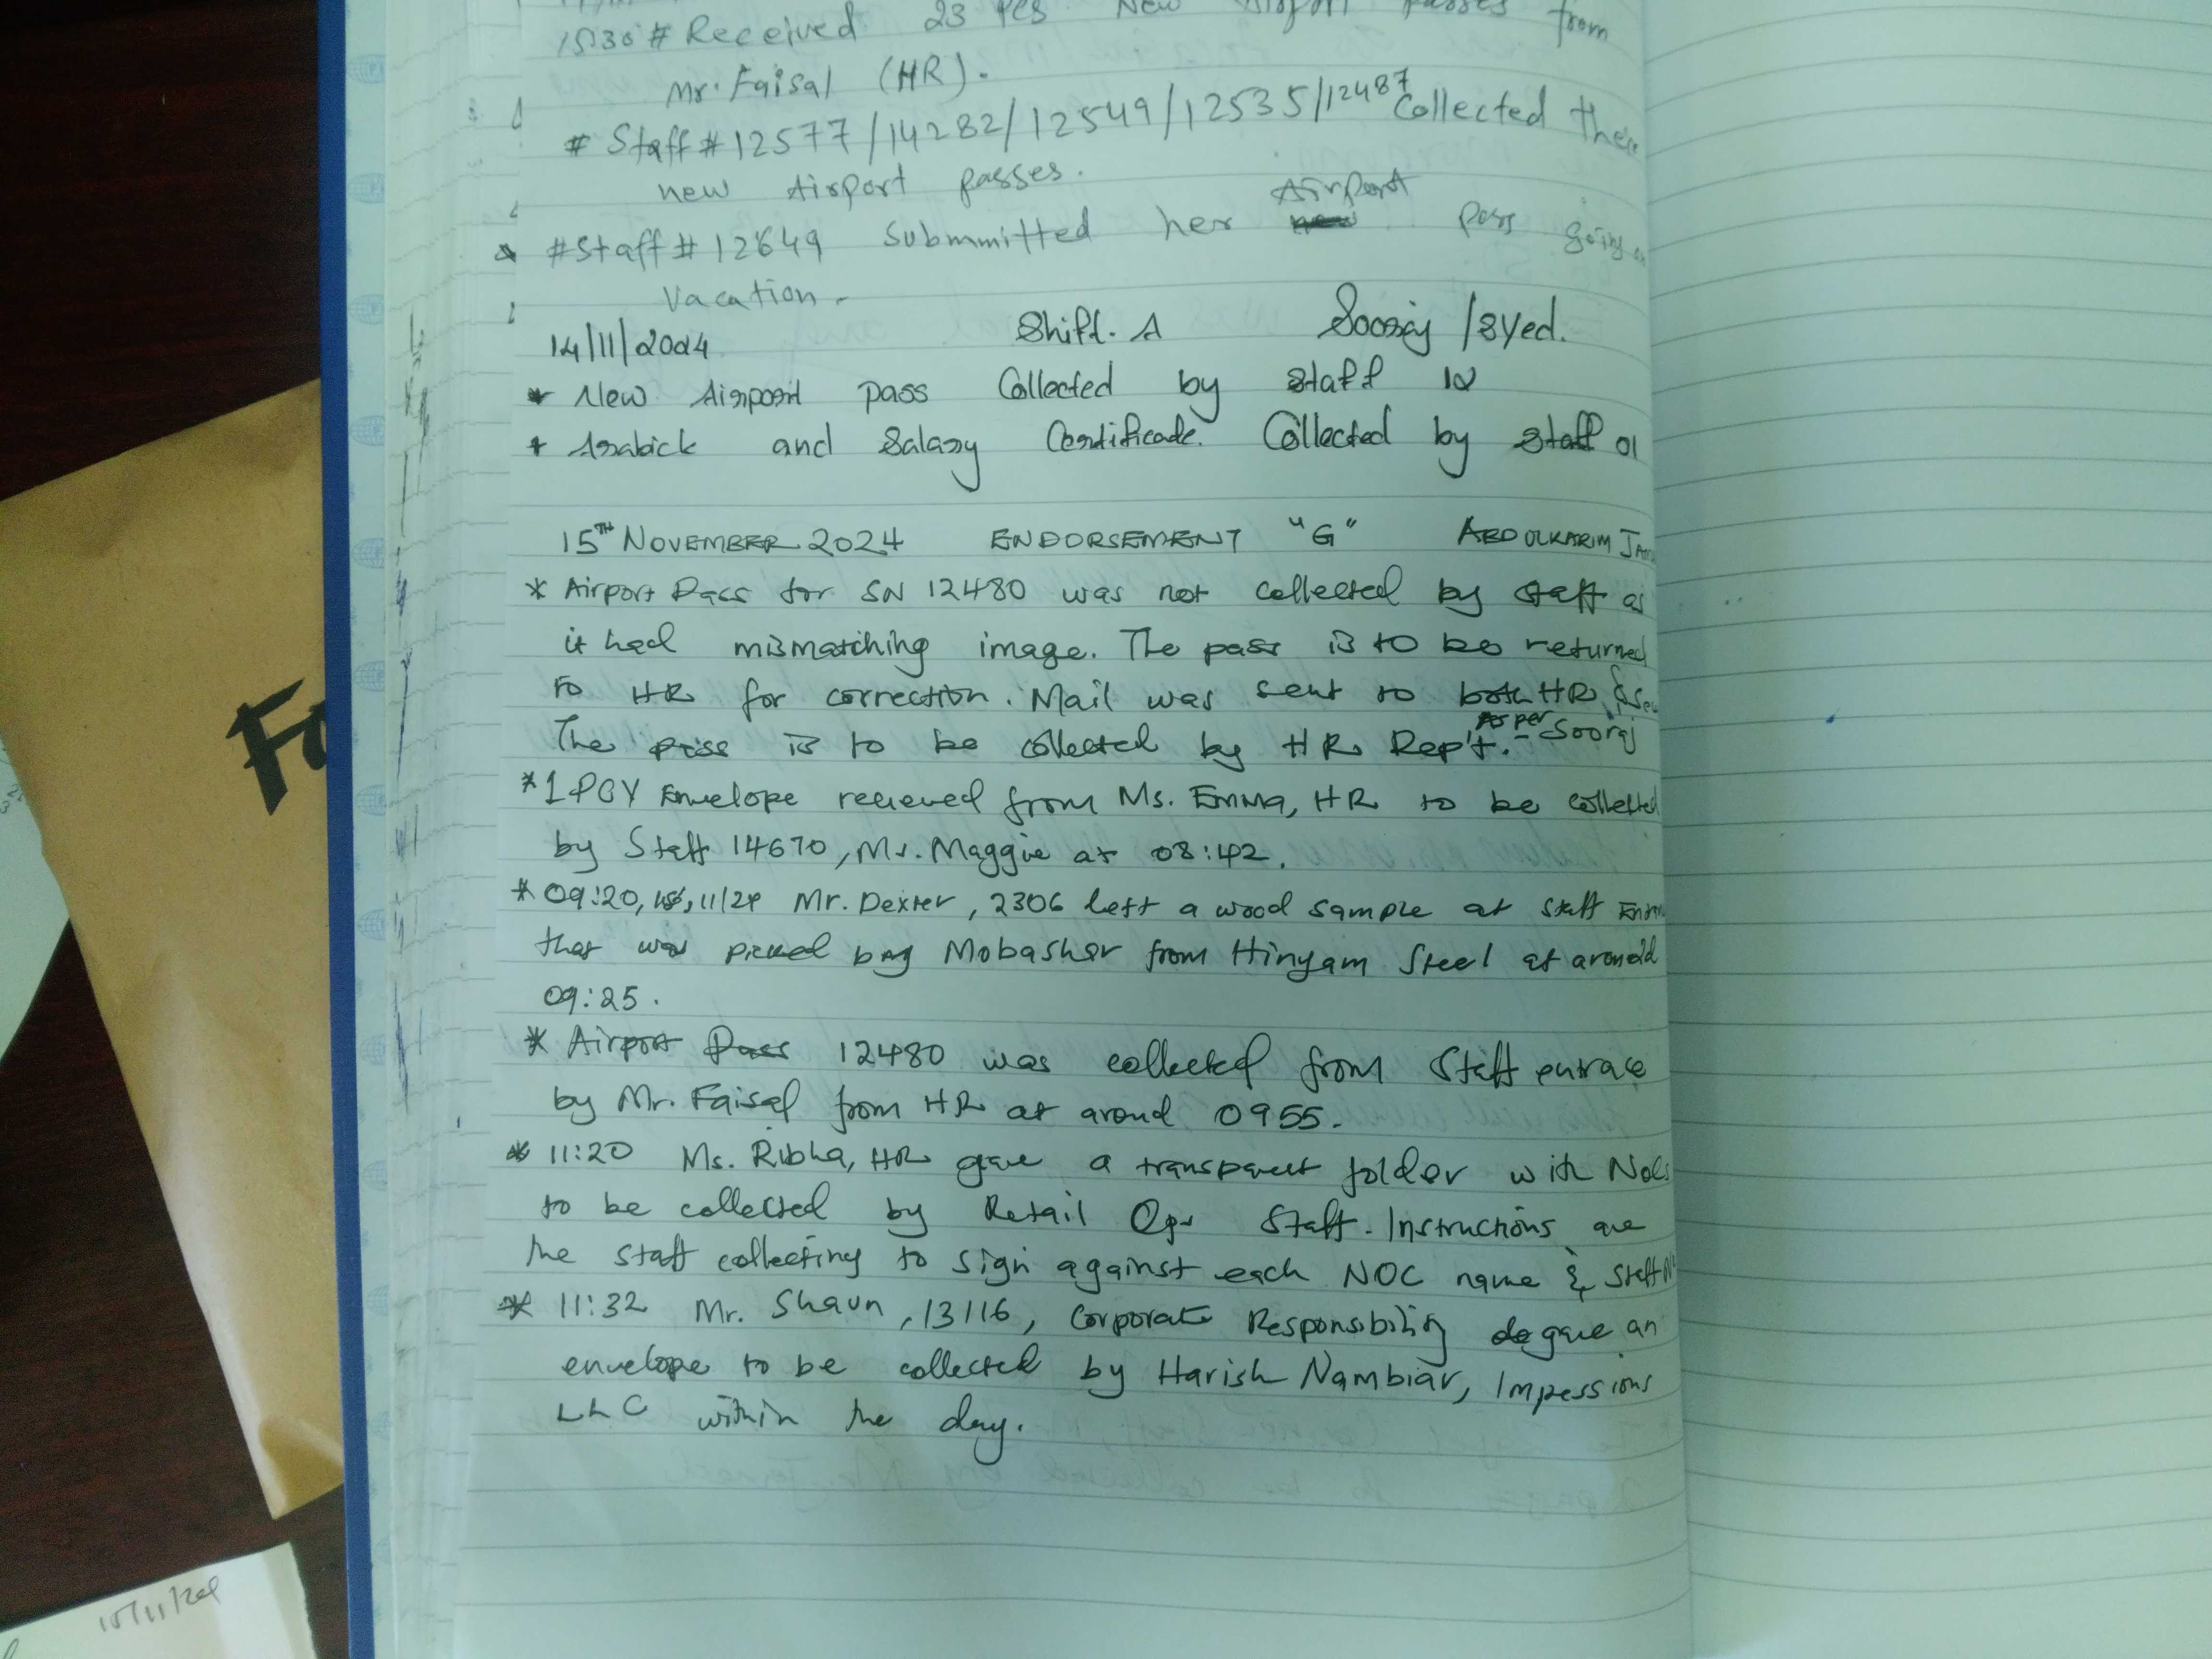 15:30 # Received 23 pcs New Airport passes from
Mr. Faisal (HR).
# Staff # 12577/14282/12549/12535/12487 Collected there
new Airport passes.
#Staff # 12649 Submmitted her Airport pass going on
Vacation.
14/11/2024 Shift. A Sooraj /Syed.
* New Airport pass Collected by staff 12
* Arabick and Salary Certificate. Collected by staff 01
15TH NOVEMBER 2024 ENDORSEMENT "G" ABDULKARIM
* Airport Pass for SN 12480 was not collected by staff as
it had mismatching image. The pass is to be returned
to HR for correction. Mail was sent to both HR &
The pass is to be collected by HR Rep't. - As per Sooraj
* 1 POY Envelope recieved from Ms. Emma, HR to be collected
by Staff 14670, Ms. Maggie at 08:42.
* 09:20, 15, 11/24 Mr. Dexter, 2306 left a wood sample at staff
that was picked by Mobasher from Hinyam Steel at around
09:25.
* Airport Pass 12480 was collected from Staff entrace
by Mr. Faisal from HR at aroud 0955.
* 11:20 Ms. Ribha, HR gave a transparent folder with Nocs
to be collected by Retail Ops Staff. Instructions are
the staff collecting to sign against each NOC name & Staff No
* 11:32 Mr. Shaun, 13116, Corporate Responsibility gave an
envelope to be collected by Harish Nambiar, Impessions
LLC within the day.
Fa
15/11/24